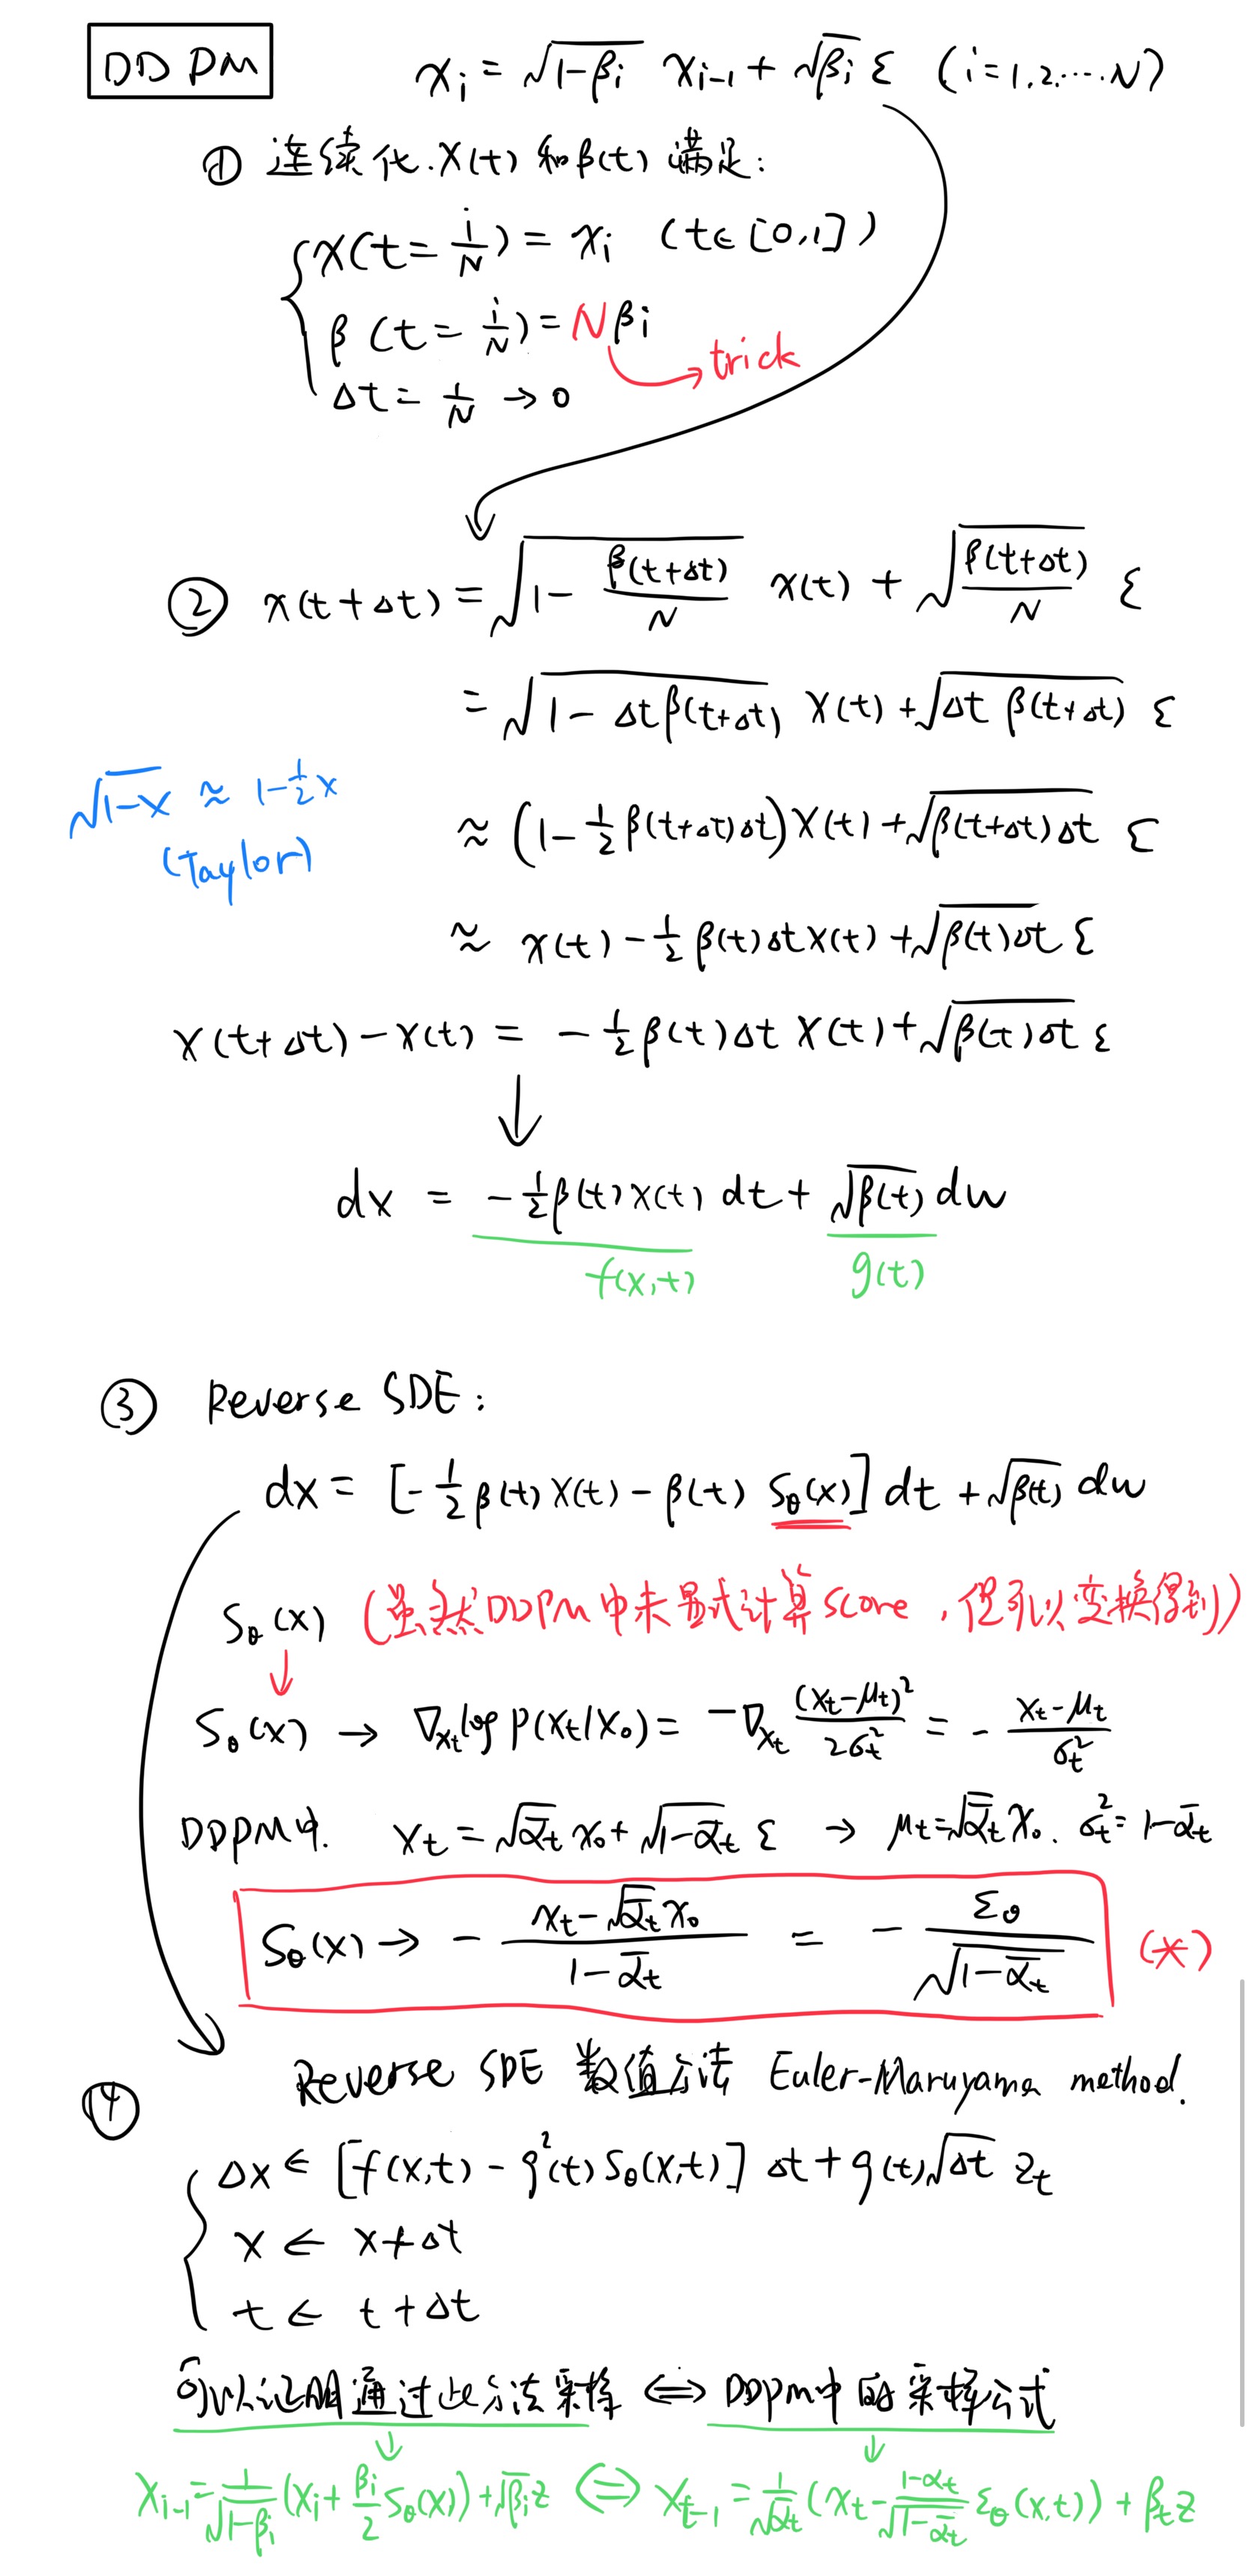 DDPM
x_i = √(1-β_i) x_{i-1} + √β_i ε (i=1,2,…,N)
① 连续化. X(t) 和 β(t) 满足:
x(t = i/N) = x_i (t∈[0,1])
β(t = i/N) = Nβi
trick
Δt = 1/N → 0
② x(t+Δt) = √(1 - β(t+Δt)/N) x(t) + √(β(t+Δt)/N) ε
= √(1 - Δtβ(t+Δt)) X(t) + √(Δt β(t+Δt)) ε
√(1-x) ≈ 1-½x
(Taylor)
≈ (1-½β(t+Δt)Δt)X(t) + √(β(t+Δt)Δt) ε
≈ x(t) - ½β(t)ΔtX(t) + √(β(t)Δt) ε
X(t+Δt) - X(t) = -½β(t)Δt X(t) + √(β(t)Δt) ε
dx = -½β(t)X(t) dt + √β(t) dw
f(x,t) g(t)
③ Reverse SDE:
dx = [-½β(t)X(t) - β(t) S_θ(x)] dt + √β(t) dw
S_θ(x) (虽然DDPM中未显式计算score, 但可以变换得到)
S_θ(x) → ∇_{x_t} log P(x_t|x_0) = -∇_{x_t} (x_t-μ_t)²/2σ_t² = - (x_t-μ_t)/σ_t²
DDPM中. x_t = √ᾱ_t x_0 + √(1-ᾱ_t) ε → μ_t=√ᾱ_t x_0. σ_t²=1-ᾱ_t
S_θ(x) → - (x_t-√ᾱ_t x_0)/(1-ᾱ_t) = - ε_θ/√(1-ᾱ_t) (*)
④ Reverse SDE 数值方法 Euler-Maruyama method.
Δx ← [f(x,t) - g²(t)S_θ(x,t)] Δt + g(t)√Δt z_t
x ← x+Δt
t ← t+Δt
可以证明通过此方法采样 ⇔ DDPM中的采样公式
x_{i-1} = 1/√(1-β_i) (x_i + β_i/2 S_θ(x)) + √β_i z ⇔ x_{t-1} = 1/√α_t (x_t - (1-α_t)/√(1-ᾱ_t) ε_θ(x,t)) + β_t z